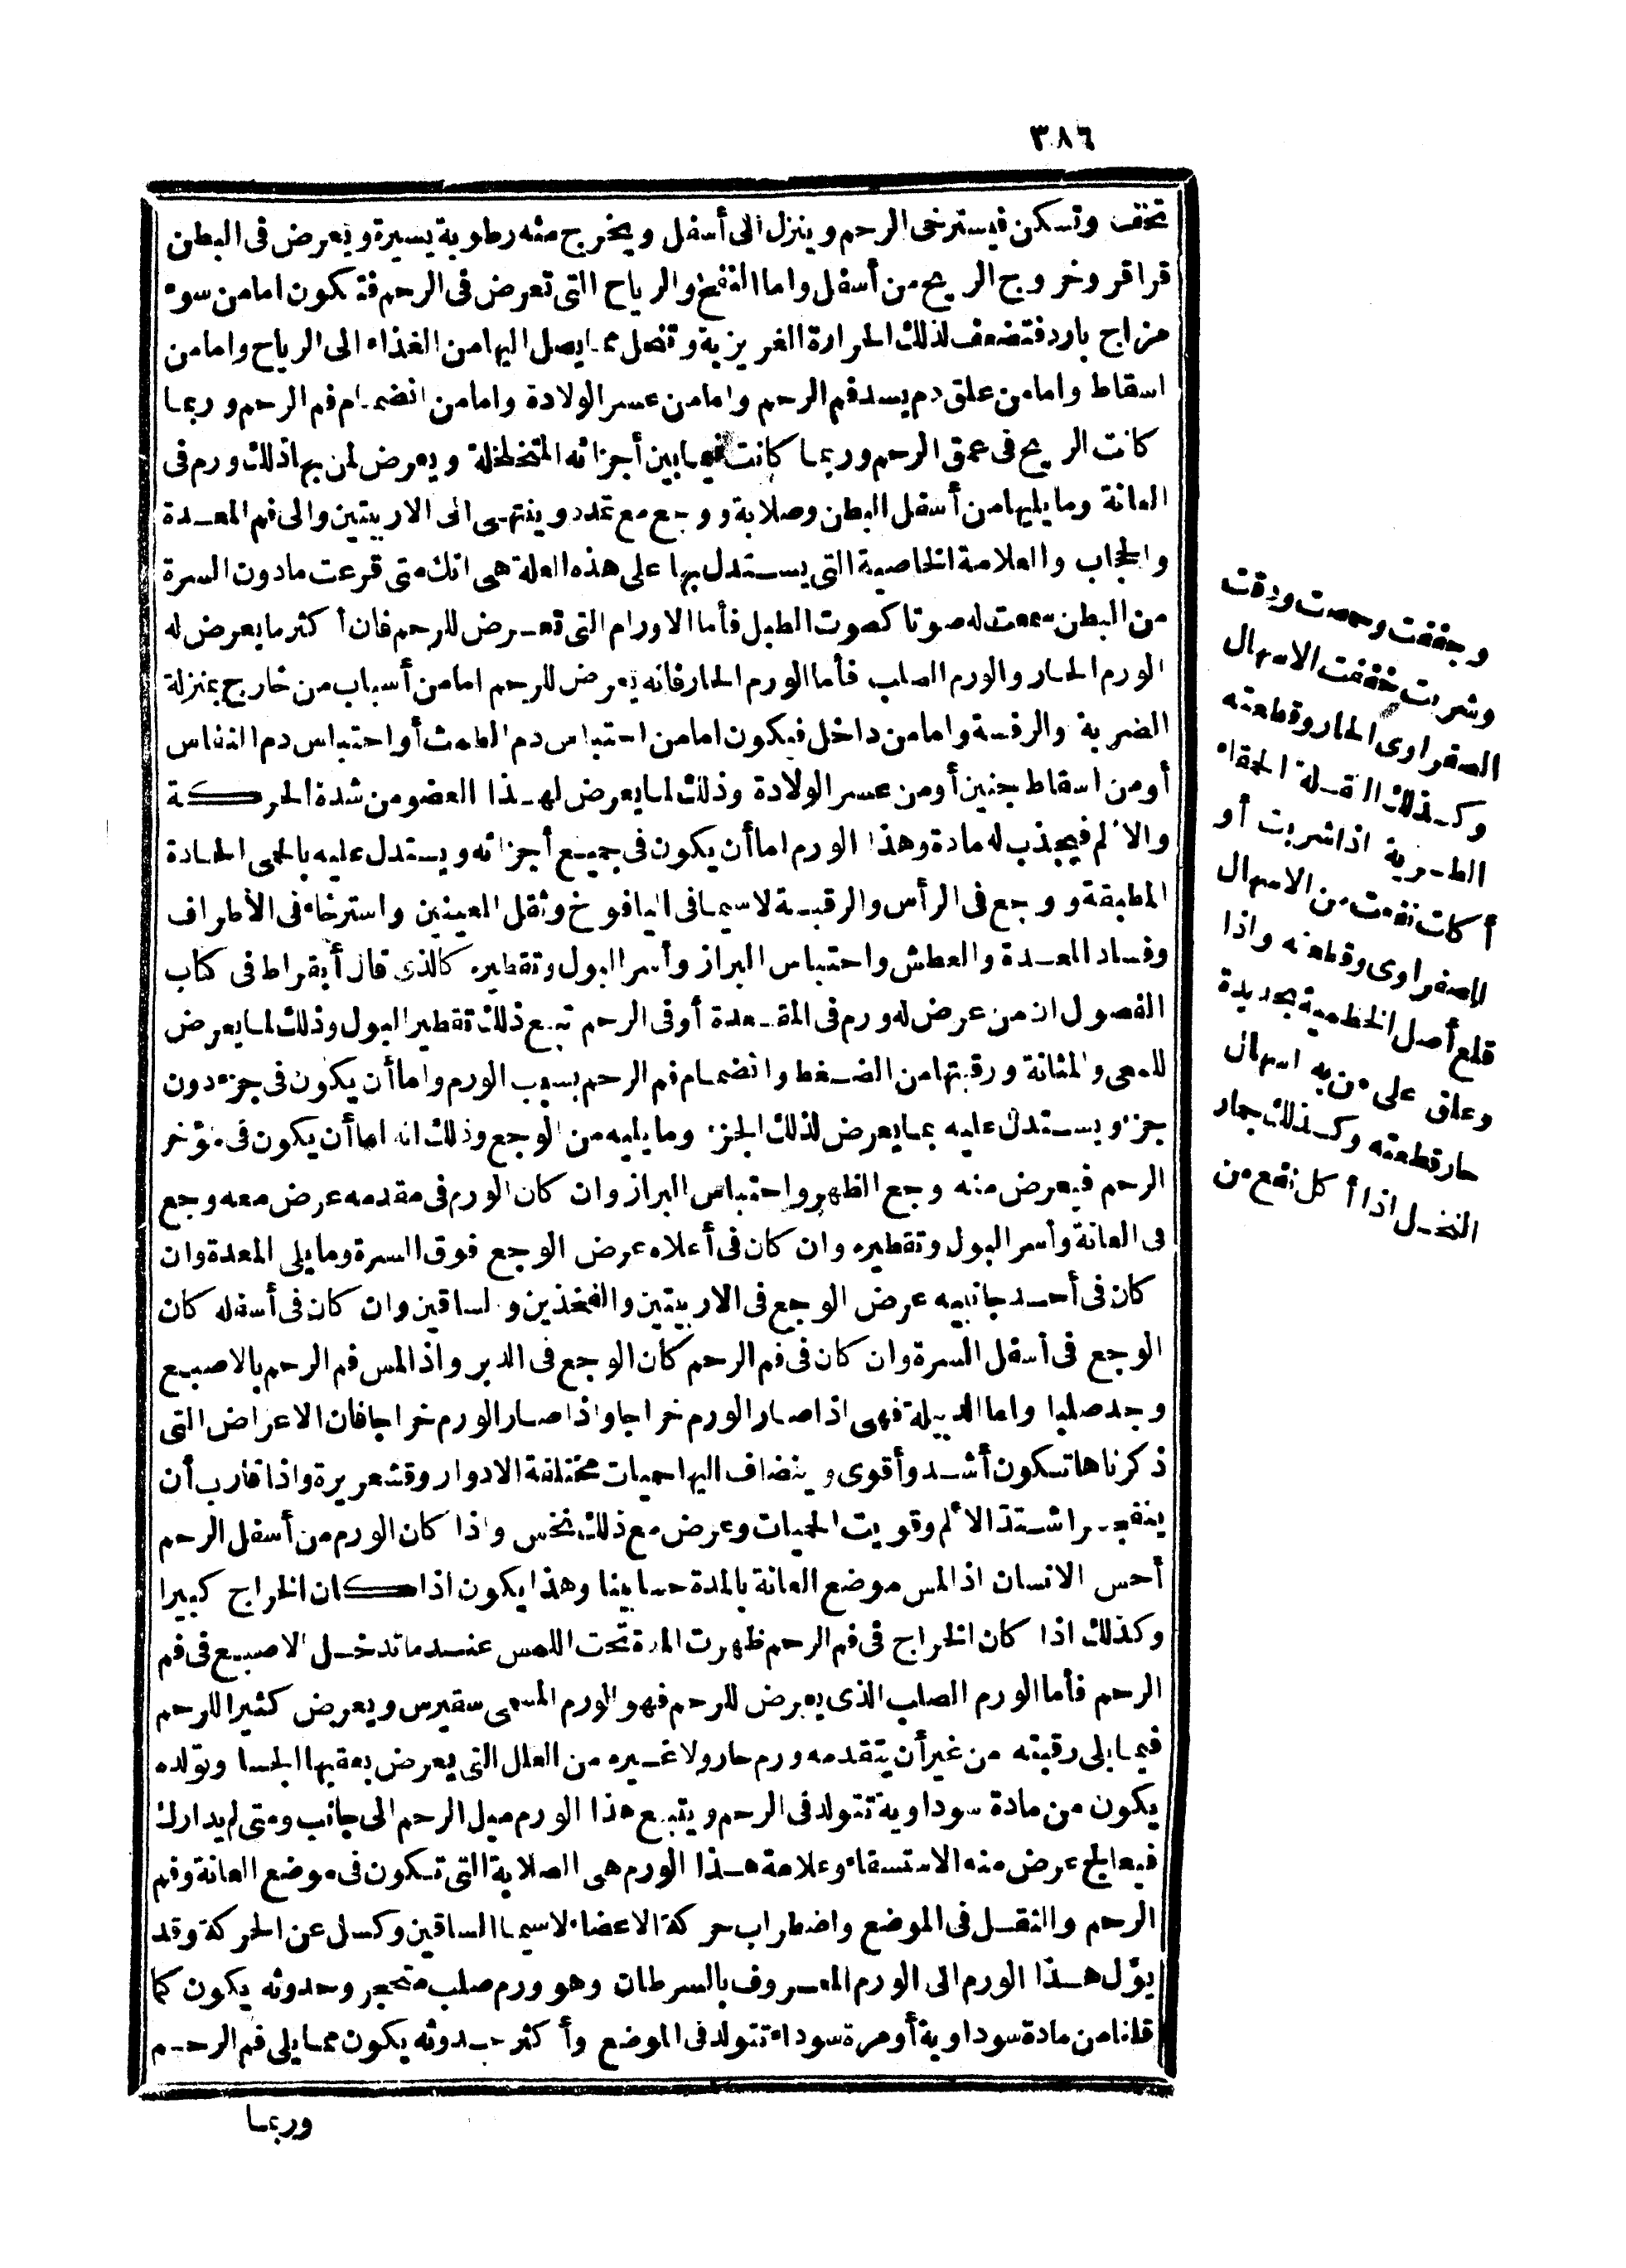 ٣٨٦
تخفف وتسكن فيسترخى الرحم وينزل الى أسفل ويخرج منه رطوبة يسيرة ويعرض فى البطن
قراقر وخروج الريح من أسفل واما النفخ والرياح التى تعرض فى الرحم فتكون اما من سوء
مزاج بارد فتضعف لذلك الحرارة الغريزية وتحل مما يصل اليها من الغذاء الى الرياح واما من
اسقاط واما من علق دم يسد فم الرحم واما من عسر الولادة واما من انضمام فم الرحم وربما
كانت الريح فى عمق الرحم وربما كانت فيما بين أجزائه المتخلخلة ويعرض لمن بها ذلك ورم فى
العانة وما يليها من أسفل البطن وصلابة ووجع مع تمدد وينتهى الى الاربيتين والى فم المعدة
والحجاب والعلامة الخاصية التى يستدل بها على هذه العلة هى انك متى قرعت مادون السرة
من البطن سمعت له صوتا كصوت الطبل فأما الاورام التى تعرض للرحم فان أكثر ما يعرض له
الورم الحار والورم الصلب فأما الورم الحار فانه يعرض للرحم اما من أسباب من خارج بمنزلة
الضربة والرفسة واما من داخل فيكون اما من احتباس دم الطمث أو احتباس دم النفاس
أو من اسقاط جنين أو من عسر الولادة وذلك لما يعرض لهذا العضو من شدة الحركة
والالم فيجذب له مادة وهذا الورم اما أن يكون فى جميع أجزائه ويستدل عليه بالحمى الحادة
المطبقة ووجع فى الرأس والرقبة لاسيما فى اليافوخ وثقل العينين واسترخاء فى الأطراف
وفساد المعدة والعطش واحتباس البراز وأسر البول وتقطيره كالذى قال أبقراط فى كتاب
الفصول ان من عرض له ورم فى المقعدة أو فى الرحم تبع ذلك تقطير البول وذلك لما يعرض
للمعى والمثانة ورقبتها من الضغط وانضمام فم الرحم بسبب الورم واما أن يكون فى جزء دون
جزء ويستدل عليه بما يعرض لذلك الجزء وما يليه من الوجع وذلك انه اما أن يكون فى مؤخر
الرحم فيعرض منه وجع الظهر واحتباس البراز وان كان الورم فى مقدمه عرض معه وجع
فى العانة وأسر البول وتقطيره وان كان فى أعلاه عرض الوجع فوق السرة وما يلى المعدة وان
كان فى أحد جانبيه عرض الوجع فى الاربيتين والفخذين والساقين وان كان فى أسفله كان
الوجع فى أسفل السرة وان كان فى فم الرحم كان الوجع فى الدبر واذا لمس فم الرحم بالاصبع
وجد صلبا واما الدبيلة فهى اذا صار الورم خراجا واذا صار الورم خراجا فان الاعراض التى
ذكرناها تكون أشد وأقوى وينضاف اليها حميات مختلفة الادوار وقشعريرة واذا قارب أن
ينفجر اشتد الألم وقويت الحميات وعرض مع ذلك نخس واذا كان الورم من أسفل الرحم
أحس الانسان اذا لمس موضع العانة بالمدة حسا بينا وهذا يكون اذا كان الخراج كبيرا
وكذلك اذا كان الخراج فى فم الرحم ظهرت المدة تحت اللمس عندما تدخل الاصبع فى فم
الرحم فأما الورم الصلب الذى يعرض للرحم فهو الورم المسمى سقيرس ويعرض كثيرا للرحم
فيما يلى رقبته من غير أن يتقدمه ورم حار ولا غيره من العلل التى يعرض بعقبها الجسا وتولده
يكون من مادة سوداوية تتولد فى الرحم ويتبع هذا الورم ميل الرحم الى جانب ومتى لم يدارك
فيعالج عرض منه الاستسقاء وعلامة هذا الورم هى الصلابة التى تكون فى موضع العانة وفم
الرحم والثقل فى الموضع واضطراب حركة الاعضاء لاسيما الساقين وكسل عن الحركة وقد
يؤل هذا الورم الى الورم المعروف بالسرطان وهو ورم صلب متحجر وحدوثه يكون كما
قلنا من مادة سوداوية أو مرة سوداء تتولد فى الموضع وأكثر حدوثه يكون مما يلى فم الرحم
وربما
وجففت وحمصت ودقت
وشربت خففت الاسهال
الصفراوى الحار وقطعته
وكذلك البقلة الحمقاء
الطرية اذا شربت أو
أكلت نفعت من الاسهال
الصفراوى وقطعته واذا
قلع أصل الخطمية بحديدة
وعلق على من به اسهال
حار قطعته وكذلك جمار
النخل اذا أكل نفع من